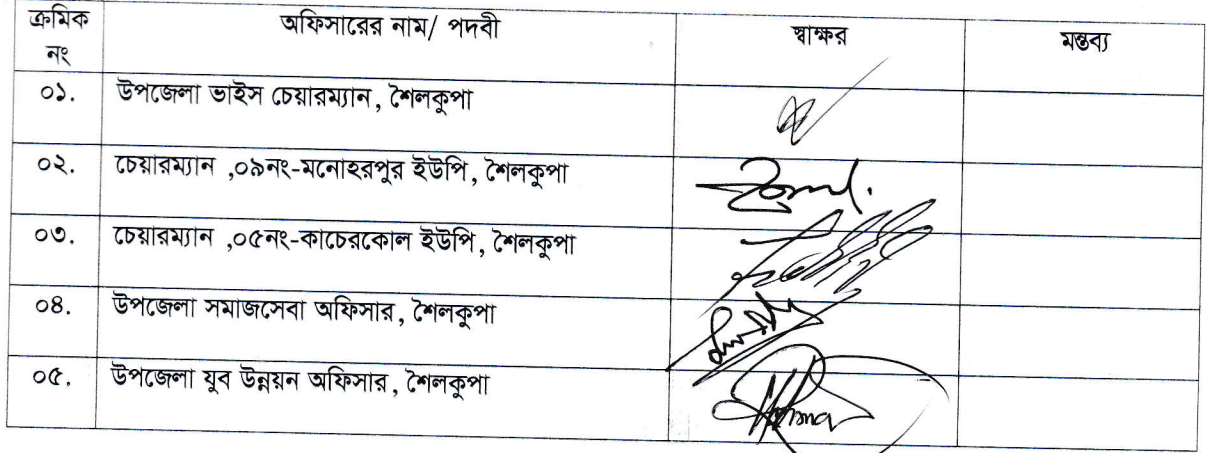 ক্রমিক নং অফিসারের নাম/ পদবী স্বাক্ষর মন্তব্য
০১. উপজেলা ভাইস চেয়ারম্যান, শৈলকুপা
০২. চেয়ারম্যান ,০৯নং-মনোহরপুর ইউপি, শৈলকুপা
০৩. চেয়ারম্যান ,০৫নং-কাচেরকোল ইউপি, শৈলকুপা
০৪. উপজেলা সমাজসেবা অফিসার, শৈলকুপা
০৫. উপজেলা যুব উন্নয়ন অফিসার, শৈলকুপা